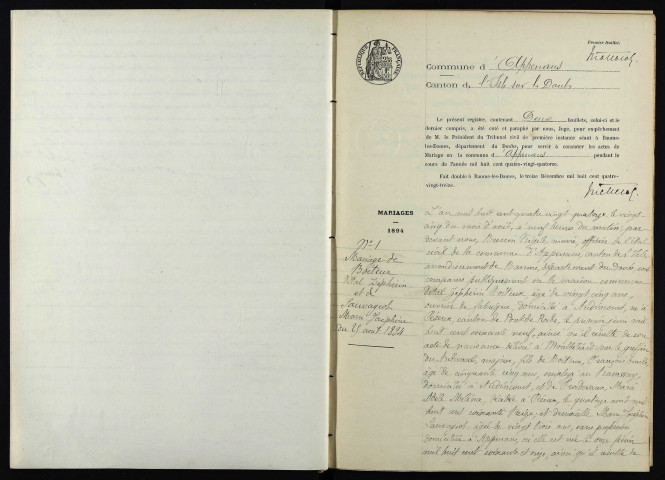 Premier feuillet.
RÉPUBLIQUE FRANÇAISE
Commune d'Appenans
Canton de l'Isle sur le Doubs
Le présent registre, contenant Deux feuillets, celui-ci et le
dernier compris, a été coté et paraphé par nous, Juge, pour empêchement
de M. le Président du Tribunal civil de première instance séant à Baume-
les-Dames, département du Doubs, pour servir à constater les actes de
Mariage en la commune d'Appenans pendant le
cours de l'année mil huit cent quatre-vingt-quatorze.
Fait double à Baume-les-Dames, le treize Décembre mil huit cent quatre-
vingt-treize.
MARIAGES
1894
N° 1
Mariage de
Boiteux
Vital Zéphirin
et de
Sauvageot
Marie Joséphine
du 25 août 1894
L'an mil huit cent quatre vingt quatorze, le vingt
cinq du mois d'août, à neuf heures du matin, par
devant nous, maire, officier de l'état
civil de la commune d'Appenans, canton de l'Isle
arrondissement de Baume, département du Doubs, ont
comparu publiquement en la maison commune
Vital Zéphirin Boiteux âgé de vingt cinq ans,
ouvrier de fabrique, domicilié à, né à
, canton de Pont de Roide, le
huit cent soixante neuf, ainsi qu'il résulte de son
acte de naissance délivré à Montbéliard par le greffier
du tribunal, majeur, fils de Boiteux, François
âgé de cinquante cinq ans,
domicilié à, et de Marie
décédée à, le quatorze août mil
huit cent soixante treize; et demoiselle Marie Joséphine
Sauvageot, âgée de vingt trois ans, sans profession
domiciliée à Appenans, où elle est née le onze juin
mil huit cent soixante et onze, ainsi qu'il résulte de